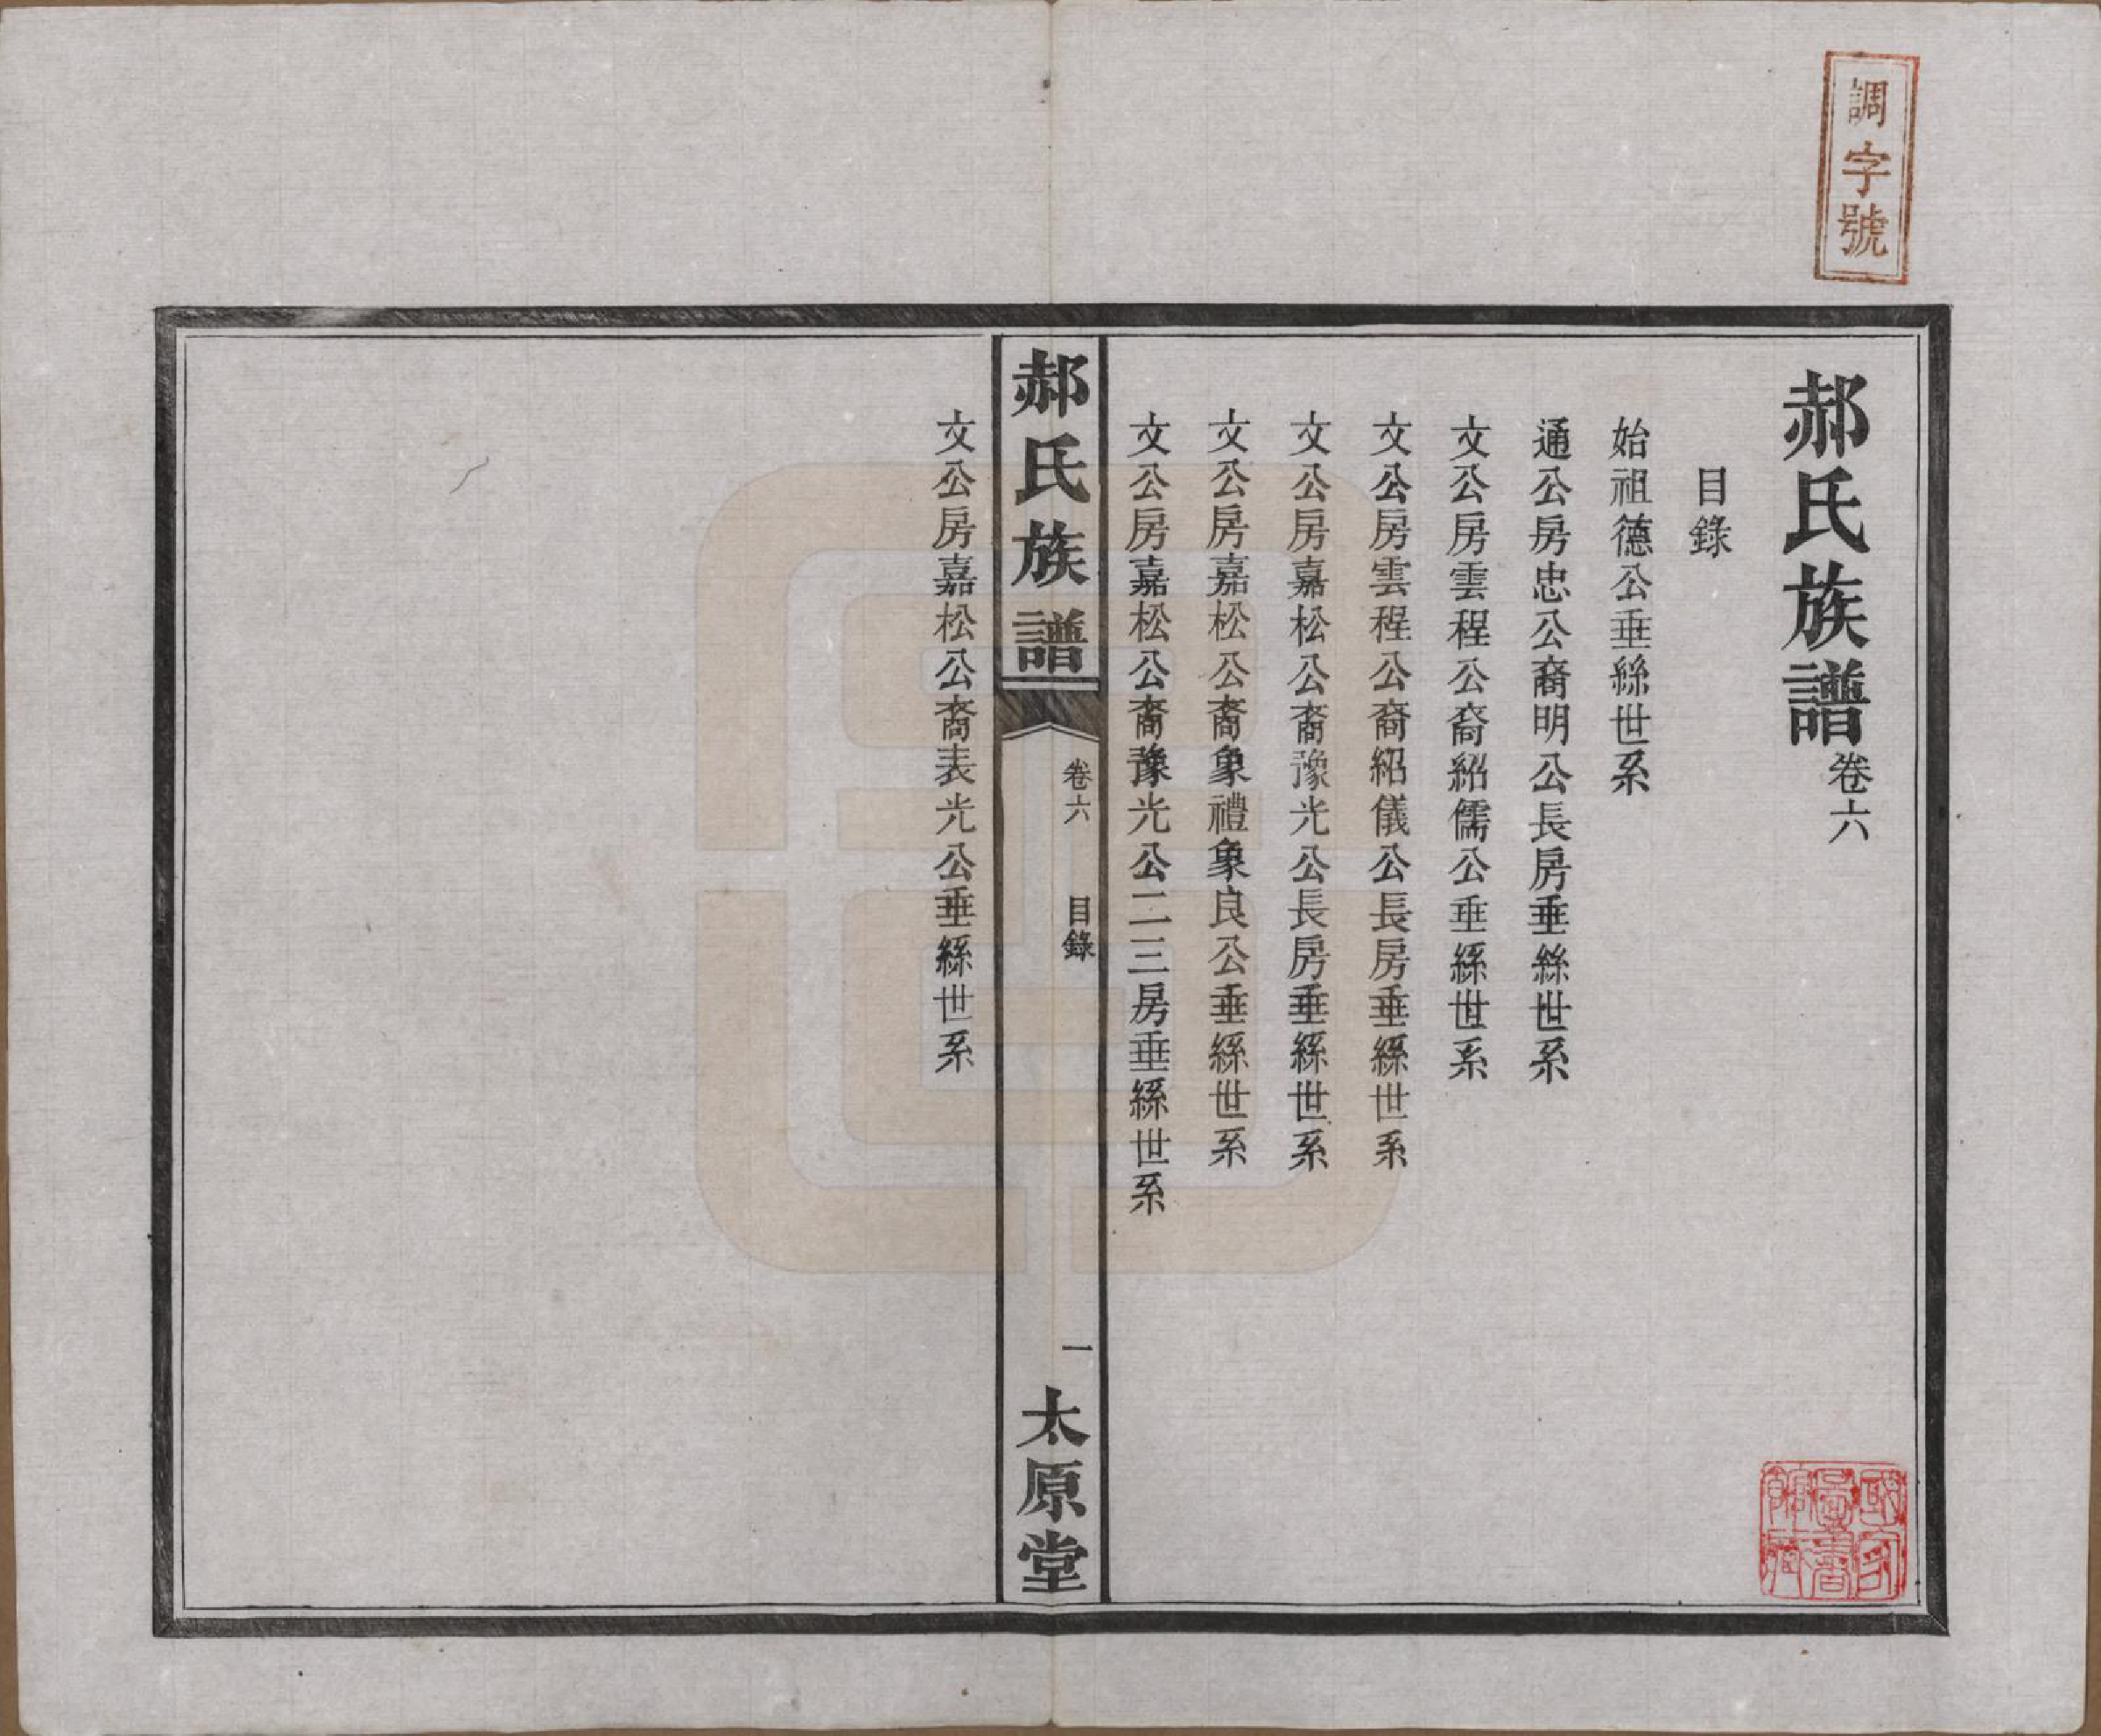 調字號
郝氏族譜卷六
目錄
始祖德公垂絲世系
通公房忠公裔明公長房垂絲世系
文公房雲程公裔紹儒公垂絲世系
文公房雲程公裔紹儀公長房垂絲世系
文公房嘉松公裔豫光公長房垂絲世系
文公房嘉松公裔象禮象良公垂絲世系
文公房嘉松公裔豫光公二三房垂絲世系
郝氏族譜
卷六
目錄
一
太原堂
文公房嘉松公裔表光公垂絲世系
國家圖書館藏